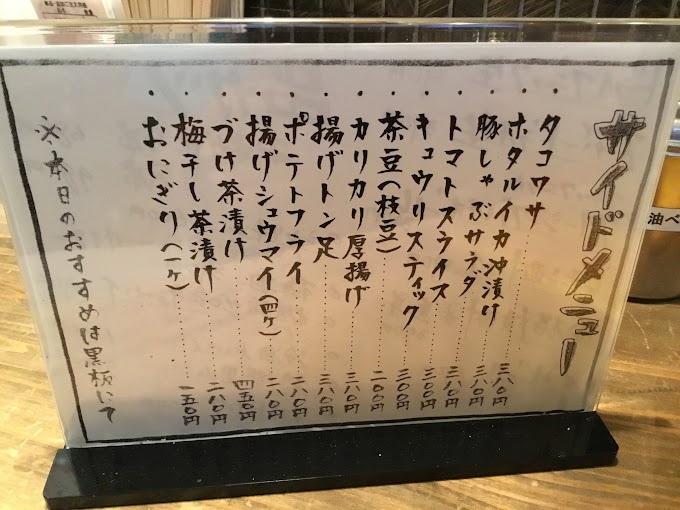 サイドメニュー
・タコワサ 三八〇円
・ホタルイカ沖漬け 三八〇円
・豚しゃぶサラダ 三八〇円
・トマトスライス 三〇〇円
・キュウリスティック 三〇〇円
・茶豆(枝豆) 二〇〇円
・カリカリ厚揚げ 三八〇円
・揚げトン足 三八〇円
・ポテトフライ 二八〇円
・揚げシュウマイ(四ケ) 二八〇円
・づけ茶漬け 四五〇円
・梅干し茶漬け 二八〇円
・おにぎり(一ケ) 一五〇円
※本日のおすすめは黒板にて
油べ